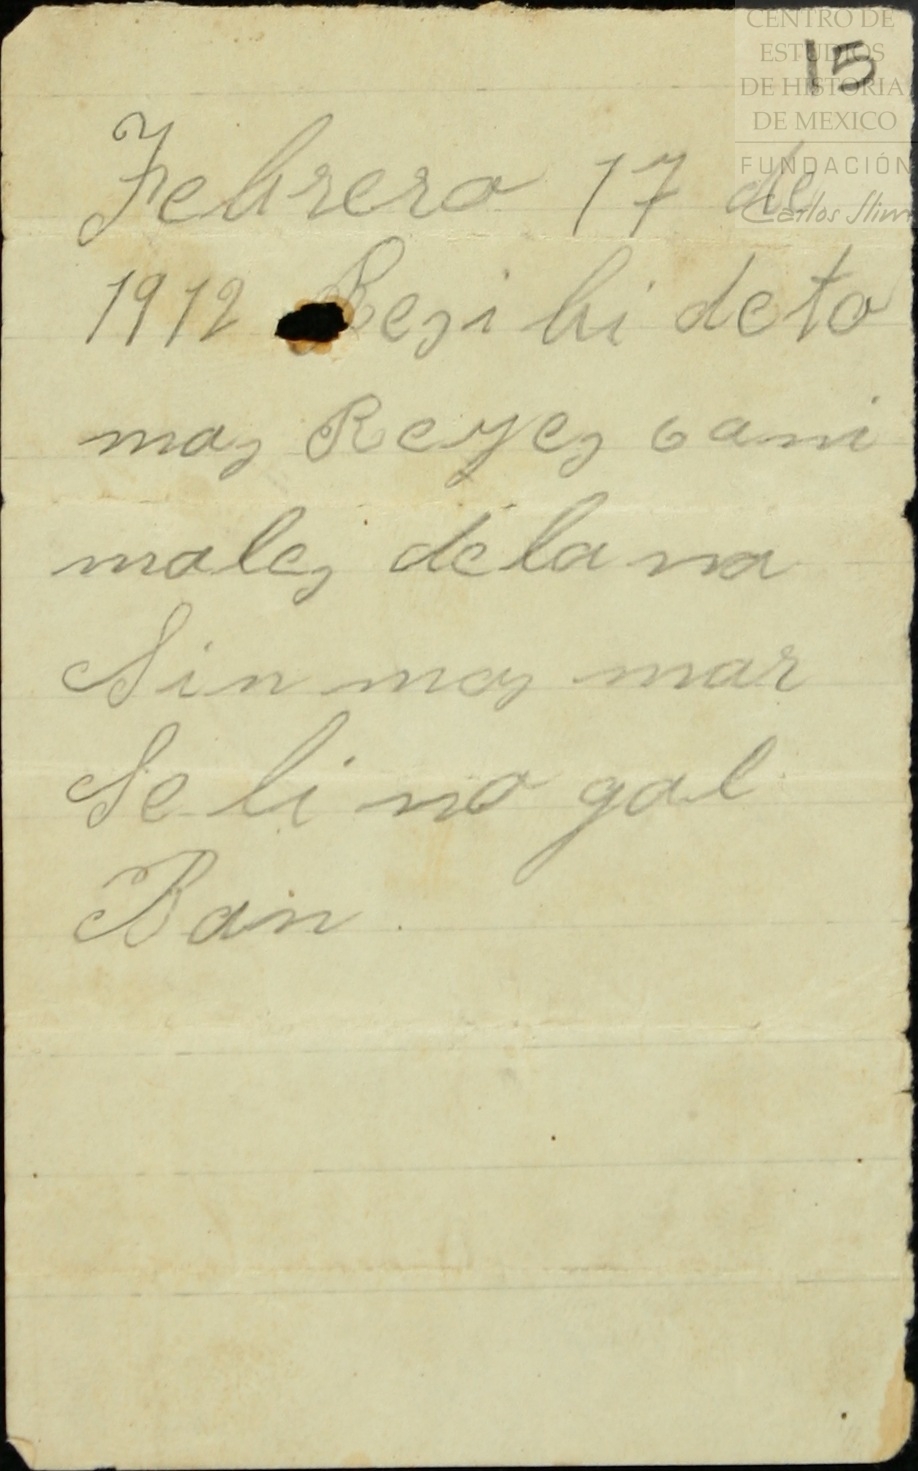 CENTRO DE
ESTUDIOS
DE HISTORIA
DE MEXICO
FUNDACIÓN
Carlos Slim
15
Febrero 17 de
1912 Rezibi deto
maz Reyez 6 ani
malez delana
Sin maz mar
Selino gal
Ban.